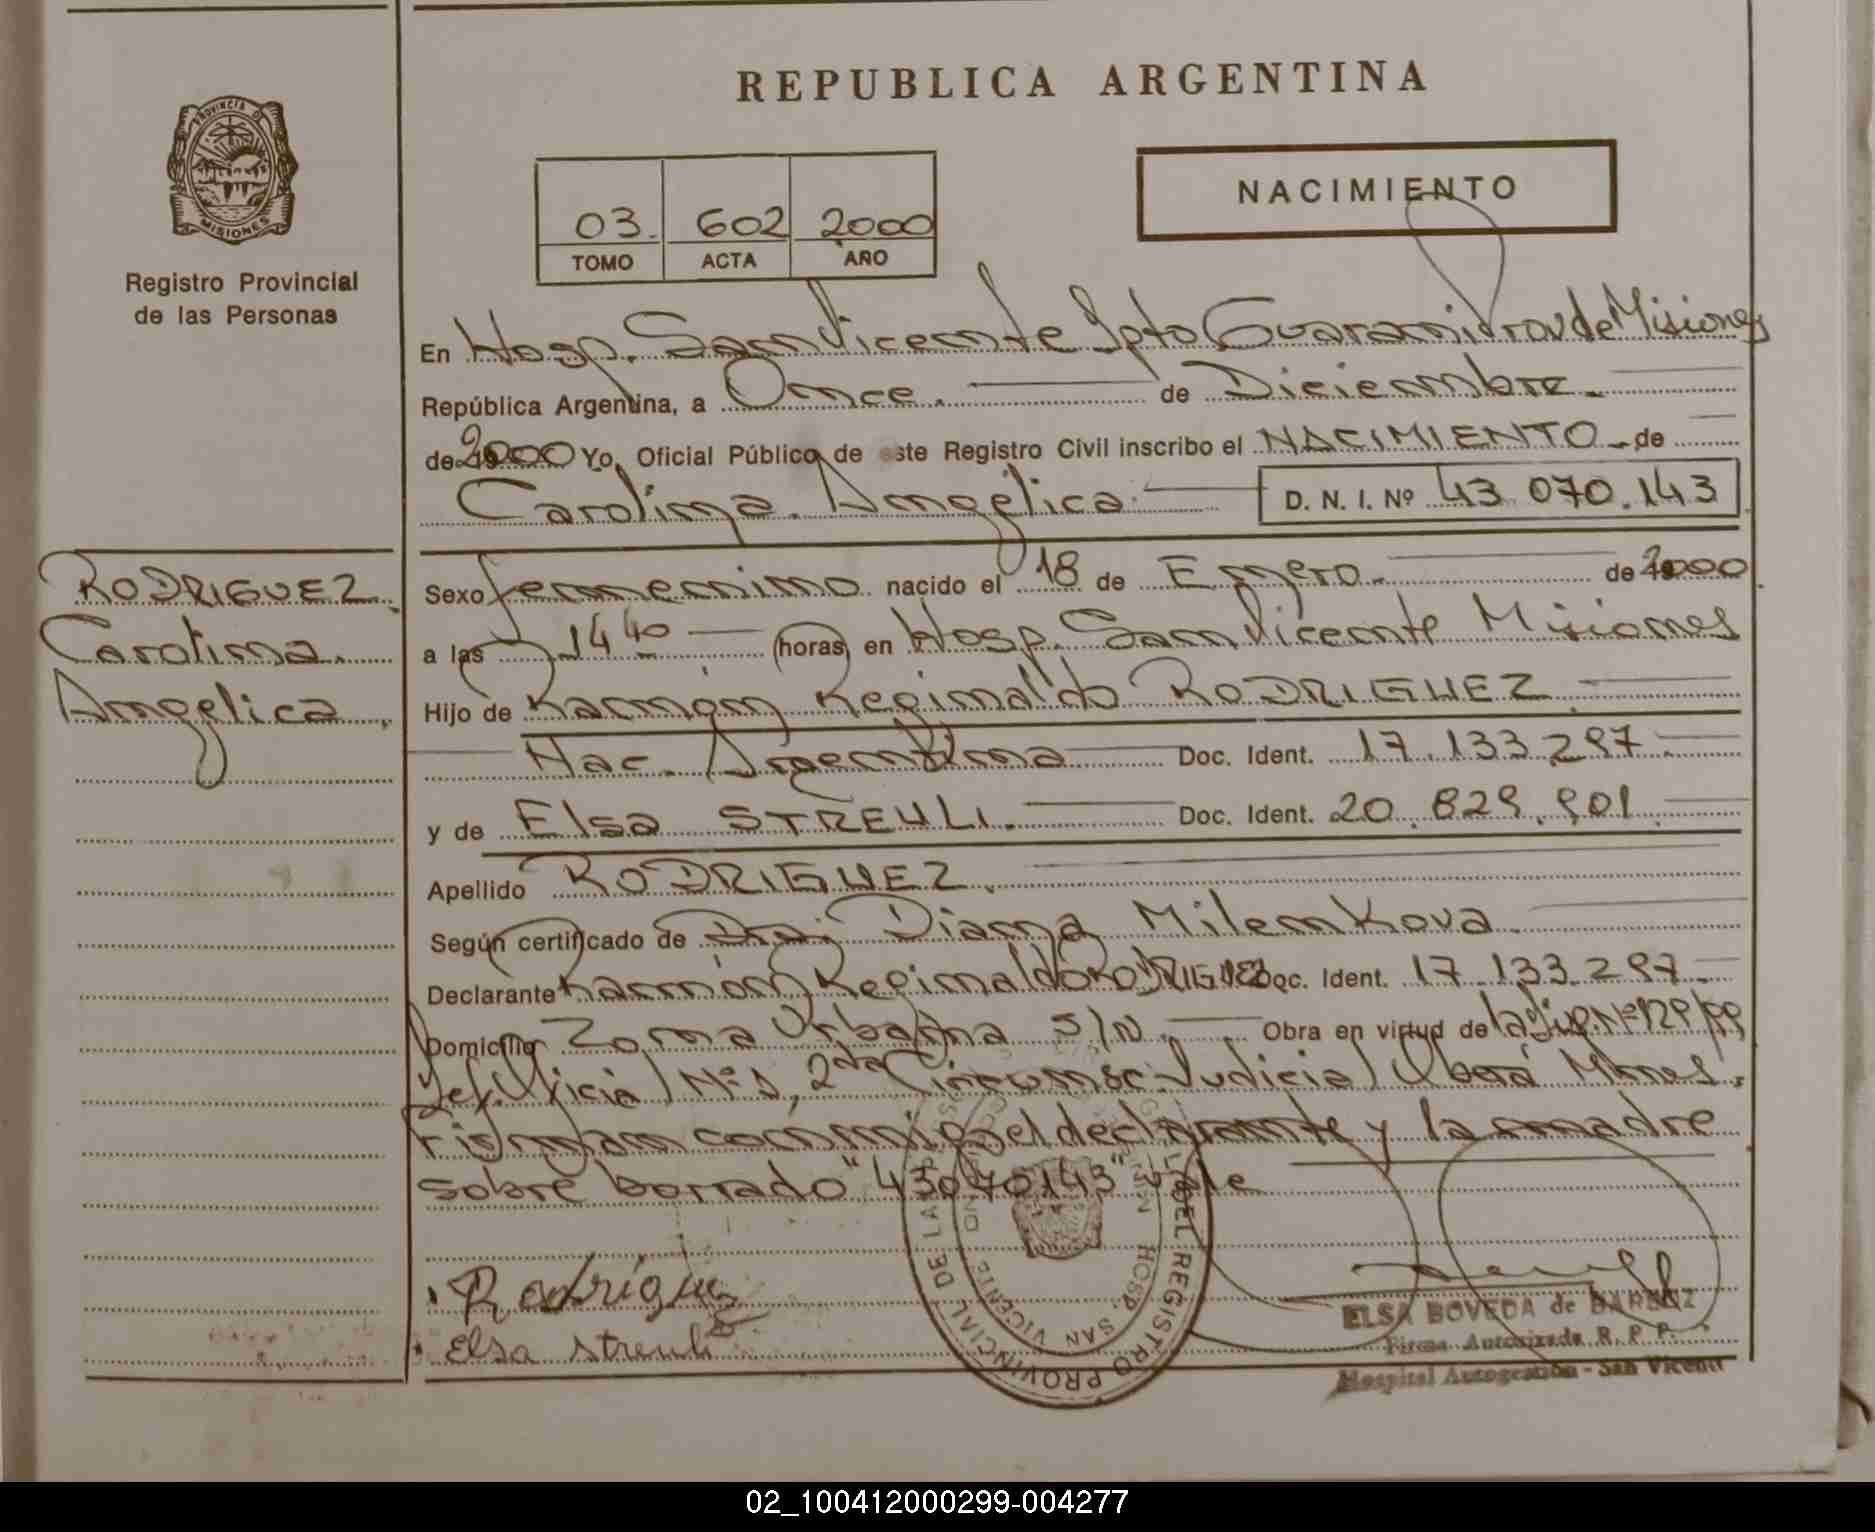 REPUBLICA ARGENTINA
PROVINCIA DE MISIONES
Registro Provincial
de las Personas
03. 602 2000
TOMO ACTA AÑO
NACIMIENTO
En Hosp. San Vicente Dpto Guarani Prov de Misiones
República Argentina, a Once. de Diciembre.
de 2000 Yo, Oficial Público de este Registro Civil inscribo el NACIMIENTO de
Carolina Angélica D. N. I. Nº 43 070.143
RODRIGUEZ
Carolina
Angelica
Sexo femenino nacido el 18 de Enero de 2000
a las 14 40 horas en Hosp. San Vicente Misiones
Hijo de Ramón Reginaldo RODRIGUEZ
Nac. Argentina Doc. Ident. 17.133.297
y de Elsa STREULI. Doc. Ident. 20.829.901
Apellido RODRIGUEZ
Según certificado de Dra. Diana Milenkova
Declarante Ramón Reginaldo RODRIGUEZ Doc. Ident. 17.133.297
Domicilio Zona Urbana S/N. Obra en virtud de
Def. Oficial Nº 1, 2da Circunsc. Judicial Oberá Mnes.
Firman conmigo el declarante y la madre
sobre borrado "43070143" vale
Rodriguez
Elsa Streuli
REGISTRO PROVINCIAL DE LAS
HOSP. SAN VICENTE
ELSA BOVEDA de BARBOZ
Firma Autorizada R. P. P.
Hospital Autogestión - San Vicente
02_100412000299-004277